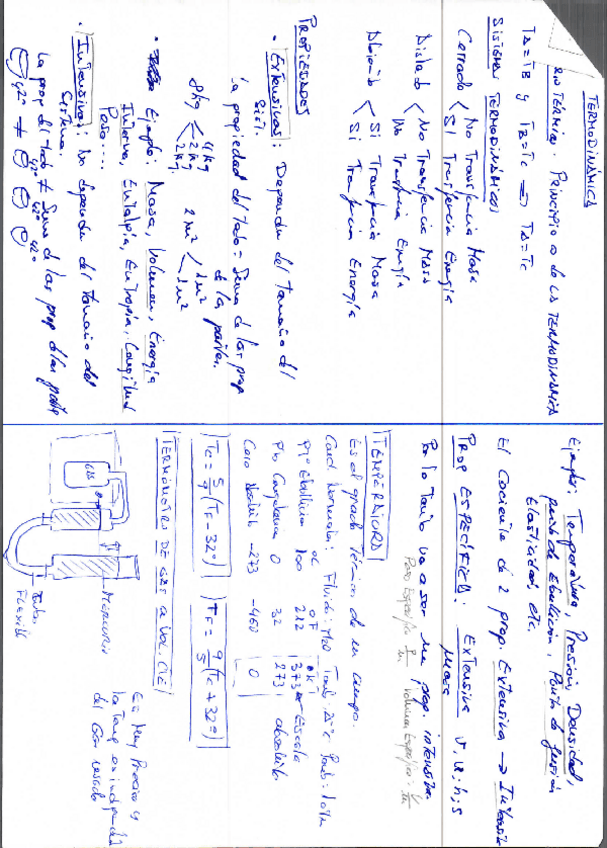 TERMODINÁMICA
RO TÉRMICO. PRINCIPIO 0 DE LA TERMODINÁMICA
TA=TB y TB=TC ⇒ TA=TC
SISTEMAS TERMODINÁMICOS
Cerrado < No Transferencia Masa
SI Transferencia Energía
Aislado < No Transferencia Masa
No Transferencia Energía
Abierto < Si Transferencia Masa
Si Transferencia Energía
PROPIEDADES
· Extensivas: Depende del tamaño del
sist.
la propiedad del todo = Suma de las prop
de las partes.
8kg < 4kg 2 m² < 1 m²
2kg 1 m²
2kg
Ejemplo: Masa, Volumen, Energía
Interna, Entalpía, Entropía, Longitud
Peso....
· Intensivas: No depende del tamaño del
Sistema.
la prop del todo ≠ Suma de las prop de las partes
42º ≠ 42º 42º 42º
Ejemplo: Temperatura, Presión, Densidad,
punto de Ebullición, Punto de fusión
Elasticidad, etc.
El Cociente de 2 prop. Extensiva →
PROP ESPECÍFICA: Extensiva v, u, h, s
Masa
Por lo Tanto va a ser una prop. intensiva.
Peso Específico Volumen Específico
TEMPERATURA
Es el grado Térmico de un cuerpo.
Cond. Normales: Fluido: H2O Tamb: 25ºC Pamb: 1 atm
ºC ºF ºK
Ptº Ebullición 100 212 373 → Escala
Pto Congelamie 0 32 273 absoluta
Cero Absoluto -273 -460 0
Tc = 5/9 (TF - 32º) TF = 9/5 (Tc + 32º)
TERMOMETRO DE GAS A VOL. CTE
GAS
Mercurio
Tubo
FLEXIBLE
Es Muy Preciso y
la Temp es independ
del Gas usado